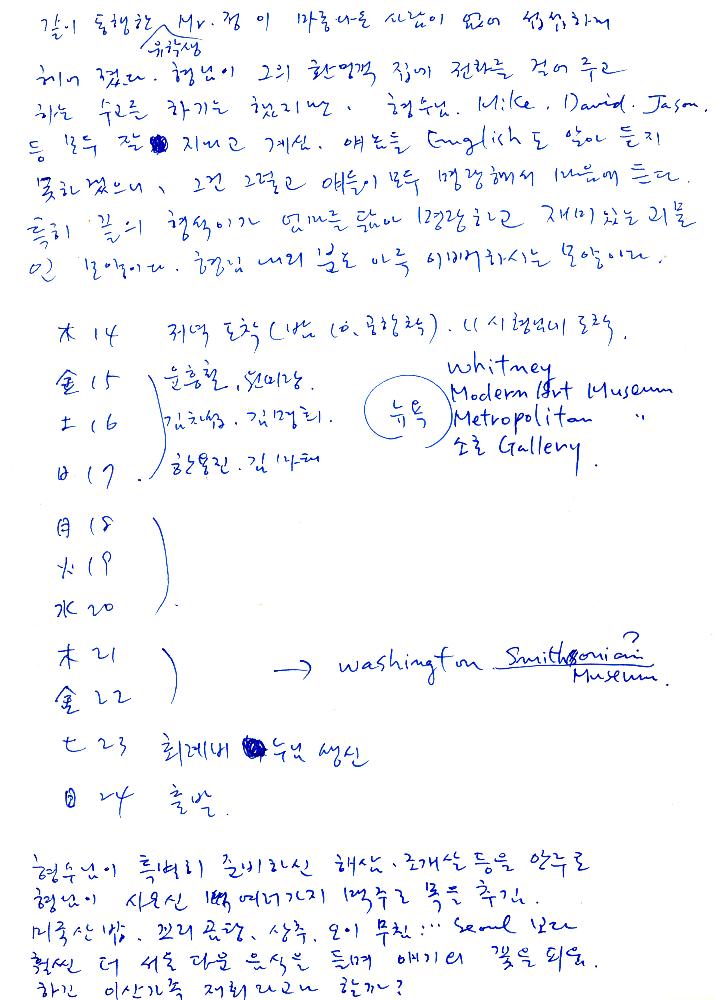 같이 동행한 Mr. 정이 마중나온 사람이 없어 섭섭하게
유학생
헤어졌다. 형님이 그의 환영객 집에 전화를 걸어 주고
하는 수고를 하기는 했지만, 형수님, Mike, David, Jason,
등 모두 잘 지내고 계심. 얘들 English도 알아 듣지
못하겠으나, 그건 그렇고 얘들이 모두 명랑해서 마음에 든다.
특히 끝의 형식이가 엄마를 닮아 명랑하고 재미있는 괴물
인 모양이다. 형님 내외 분도 아주 이뻐하시는 모양이다.
木 14 저녁 도착 (밤 10, 공항착). 11시 형님네 도착.
金 15 윤흥철, 원미랑.
土 16 김차섭, 김명희.
日 17 한용진, 김
뉴욕
Whitney
Modern Art Museum
Metropolitan 〃
소호 Gallery.
月 18
火 19
水 20
木 21
金 22
→ Washington Smithsonian?
Museum.
土 23 누님 생신
日 24 출발.
형수님이 특별히 준비하신 해삼, 조개살 등을 안주로
형님이 사오신 여러가지 맥주로 목을 축임.
미국산 밥, 꼬리곰탕, 상추, 오이 무침 … Seoul 보다
훨씬 더 서울 다운 음식을 들며 얘기의 꽃을 피움.
하긴 이산가족 재회라고나 할까?